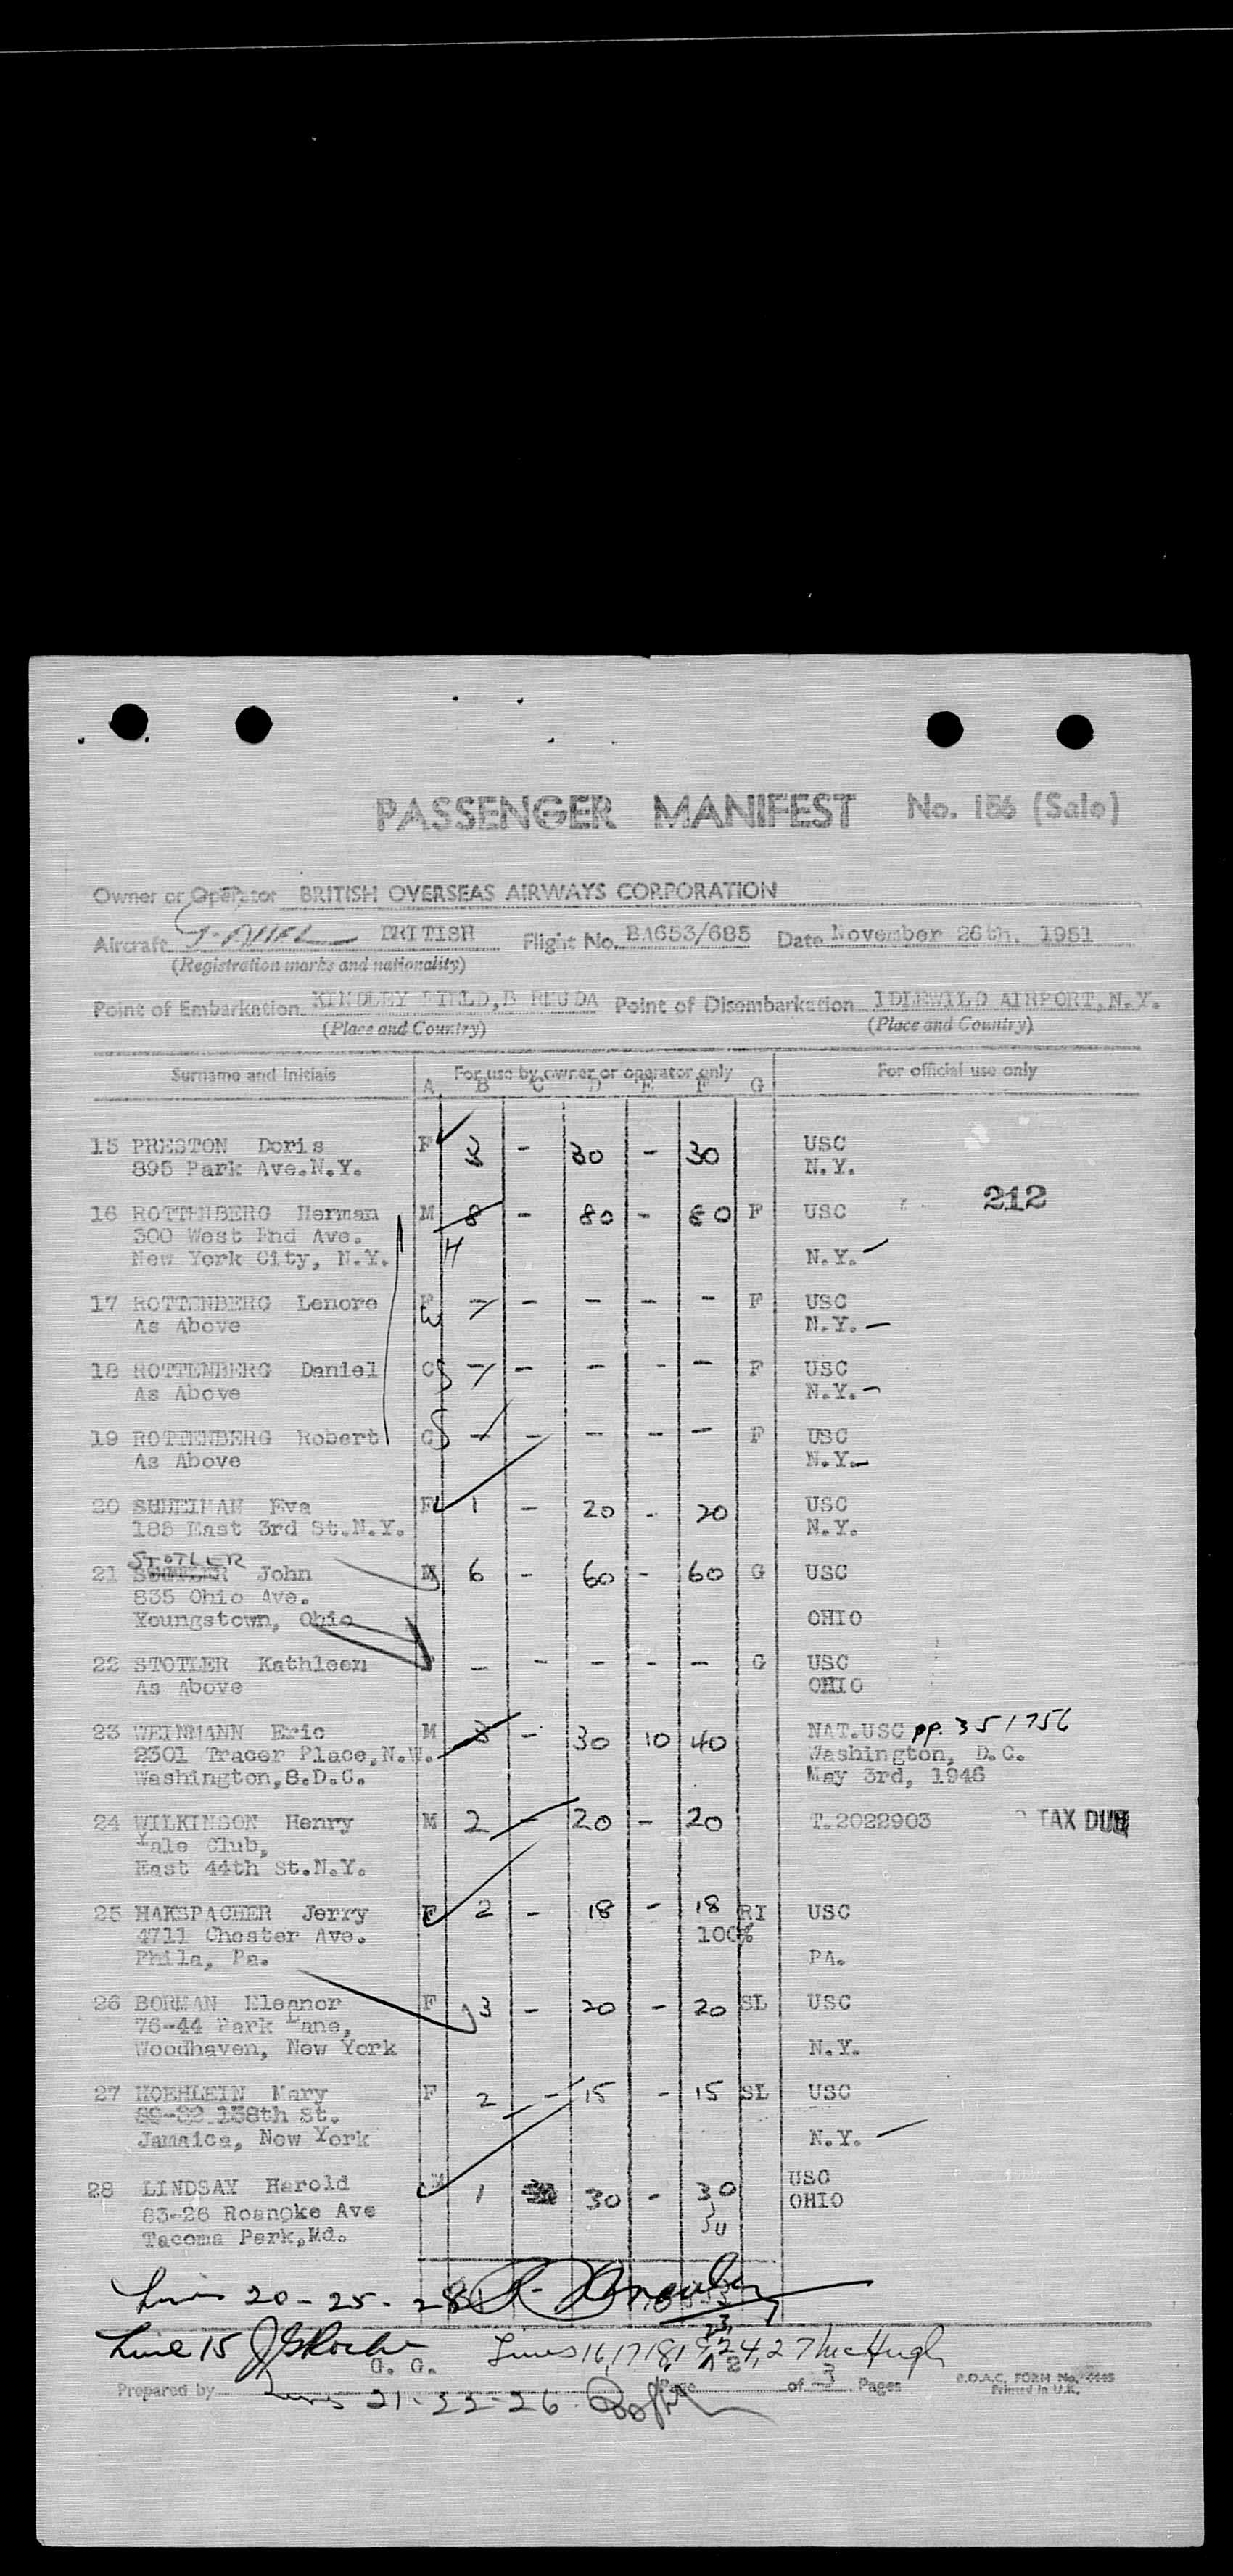 PASSENGER MANIFEST No. 156 (Sale)
Owner or Operator BRITISH OVERSEAS AIRWAYS CORPORATION
Aircraft BRITISH Flight No. BA653/685 Date November 26th. 1951
(Registration marks and nationality)
Point of Embarkation KINDLEY FIELD, B RMUDA Point of Disembarkation IDLEWILD AIRPORT, N.Y.
(Place and Country) (Place and Country)
Surname and Initials For use by owner or operator only For official use only
A B C D E F G
15 PRESTON Doris F 3 - 30 - 30 USC
895 Park Ave.N.Y. N.Y.
212
16 ROTTENBERG Herman M 8 - 80 - 80 F USC
300 West End Ave. H
New York City, N.Y. N.Y.
17 ROTTENBERG Lenore F - - - - - F USC
As Above W N.Y.
18 ROTTENBERG Daniel C S - - - - - F USC
As Above N.Y.
19 ROTTENBERG Robert C S - - - - - F USC
As Above N.Y.
20 Eva F 1 - 20 - 20 USC
185 East 3rd St.N.Y. N.Y.
STOTLER
21 John M 6 - 60 - 60 G USC
835 Ohio Ave.
Youngstown, Ohio OHIO
22 STOTLER Kathleen F - - - - - G USC
As Above OHIO
23 WEINMANN Eric M 3 - 30 10 40 NAT.USC pp. 351756
2301 Tracer Place,N.W. Washington, D.C.
Washington,8.D.C. May 3rd, 1946
24 WILKINSON Henry M 2 - 20 - 20 T.2022903 TAX DUE
Yale Club,
East 44th St.N.Y.
25 HAKSPACHER Jerry F 2 - 18 - 18 RI USC
4711 Chester Ave. 100%
Phila, Pa. PA.
26 BORMAN Eleanor F 3 - 20 - 20 SL USC
76-44 Park Lane,
Woodhaven, New York N.Y.
27 KOEHLEIN Mary F 2 - 15 - 15 SL USC
138th St.
Jamaica, New York N.Y.
28 LINDSAY Harold M 1 30 - 30 USC
83-26 Roanoke Ave OHIO
Tacoma Park,Md.
Lines 20-25-28
Line 15 Lines 16,17,18,19,24,27 McHugh
23
G. G.
Prepared by Lines 21-22-26 Page 2 of 3 Pages
B.O.A.C. FORM No. 4445
Printed in U.K.